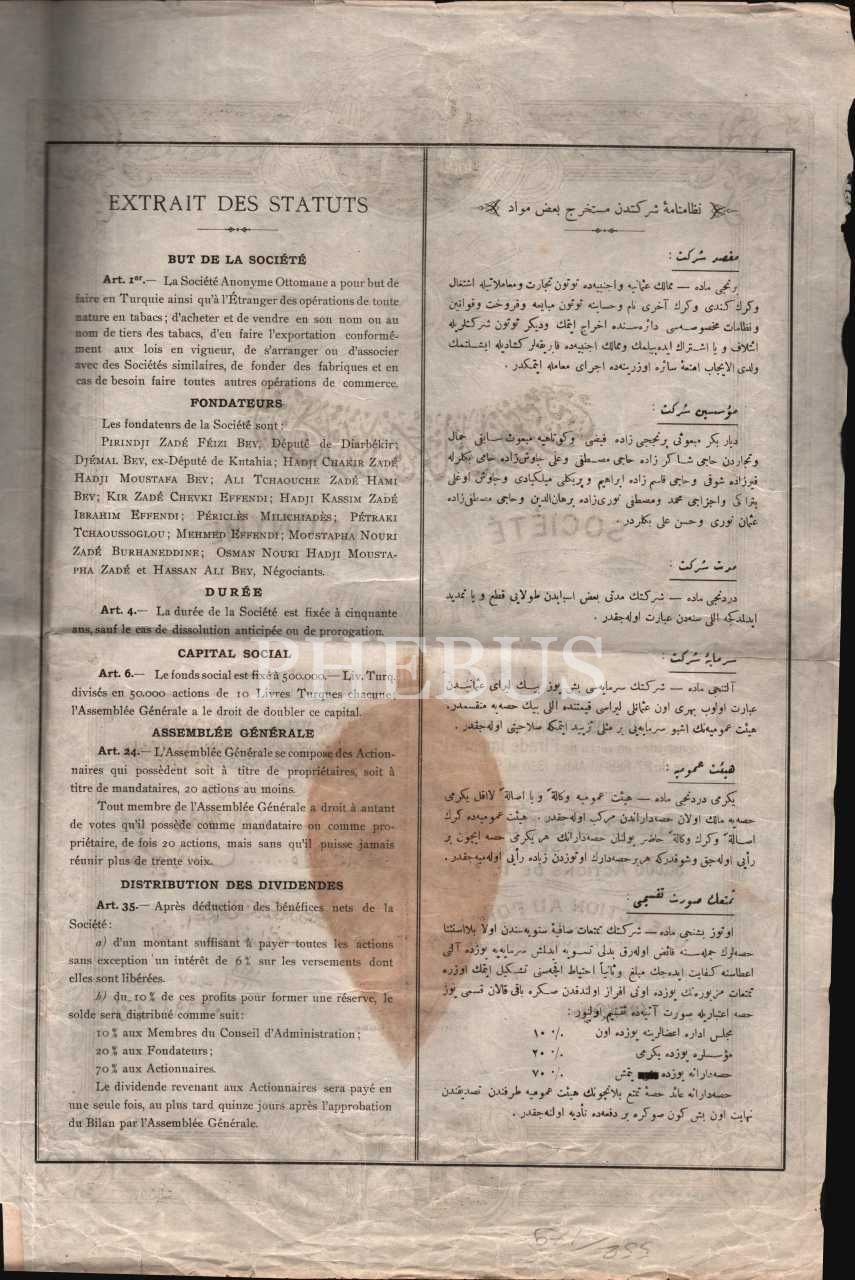 EXTRAIT DES STATUTS
BUT DE LA SOCIÉTÉ
Art. 1er.— La Société Anonyme Ottomane a pour but de
faire en Turquie ainsi qu'à l'Étranger des opérations de toute
nature en tabacs; d'acheter et de vendre en son nom ou au
nom de tiers des tabacs, d'en faire l'exportation conformé-
ment aux lois en vigueur, de s'arranger ou d'associer
avec des Sociétés similaires, de fonder des fabriques et en
cas de besoin faire toutes autres opérations de commerce.
FONDATEURS
Les fondateurs de la Société sont:
PIRINDJI ZADÉ FÉIZI BEY, Député de Diarbékir;
DJÉMAL BEY, ex-Député de Kutahia; HADJI CHAKIR ZADÉ
HADJI MOUSTAFA BEY; ALI TCHAOUCHE ZADÉ HAMI
BEY; KIR ZADÉ CHEVKI EFFENDI; HADJI KASSIM ZADÉ
IBRAHIM EFFENDI; PÉRICLÈS MILICHIADÈS; PÉTRAKI
TCHAOUSSOGLOU; MEHMED EFFENDI; MOUSTAPHA NOURI
ZADÉ BURHANEDDINE; OSMAN NOURI HADJI MOUSTA-
PHA ZADÉ et HASSAN ALI BEY, Négociants.
DURÉE
Art. 4.— La durée de la Société est fixée à cinquante
ans, sauf le cas de dissolution anticipée ou de prorogation.
CAPITAL SOCIAL
Art. 6.— Le fonds social est fixé à 500.000.— Liv. Turq.
divisés en 50.000 actions de 10 Livres Turques chacune;
l'Assemblée Générale a le droit de doubler ce capital.
ASSEMBLÉE GÉNÉRALE
Art. 24.— L'Assemblée Générale se compose des Action-
naires qui possèdent soit à titre de propriétaires, soit à
titre de mandataires, 20 actions au moins.
Tout membre de l'Assemblée Générale a droit à autant
de votes qu'il possède comme mandataire ou comme pro-
priétaire, de fois 20 actions, mais sans qu'il puisse jamais
réunir plus de trente voix.
DISTRIBUTION DES DIVIDENDES
Art. 35.— Après déduction des bénéfices nets de la
Société:
a) d'un montant suffisant à payer toutes les actions
sans exception un intérêt de 6% sur les versements dont
elles sont libérées.
b) du 10% de ces profits pour former une réserve, le
solde sera distribué comme suit:
10% aux Membres du Conseil d'Administration;
20% aux Fondateurs;
70% aux Actionnaires.
Le dividende revenant aux Actionnaires sera payé en
une seule fois, au plus tard quinze jours après l'approbation
du Bilan par l'Assemblée Générale.
نظامنامهٔ شركتدن مستخرج بعض مواد
مقصد شركت :
برنجی ماده — ممالك عثمانیه و اجنبیه‌ده توتون تجارت و معاملاتیله اشتغال
وكرك كندی وكرك آخری نام وحسابنه توتون مبایعه وفروخت وقوانین
ونظامات مخصوصه‌سی دائره‌سنده اخراج ایتمك ودیكر توتون شركتلریله
ائتلاف و یا اشتراك ایده‌بیلمك وممالك اجنبیه‌ده فابریقه‌لر كشادیله ایشلتمك
ولدی الایجاب امتعهٔ سائره اوزرینه‌ده اجرای معامله ایتمكدر .
مؤسسین شركت :
دیار بكر مبعوثی پرنجی زاده فیضی وكوتاهیه مبعوث سابقی جمال
وتجاردن حاجی شاكر زاده حاجی مصطفی وعلی چاوش‌زاده حامی بكلرله
قیرزاده شوقی وحاجی قاسم زاده ابراهیم وپریكلی میلیكیادی وچاوش اوغلی
پتراكی واجزاجی محمد ومصطفی نوری‌زاده برهان‌الدین وحاجی مصطفی‌زاده
عثمان نوری وحسن علی بكلردر .
مدت شركت :
دردنجی ماده — شركتك مدتی بعض اسبابدن طولایی قطع و یا تمدید
ایدلدكجه اللی سنه‌دن عبارت اوله‌جقدر .
سرمایهٔ شركت :
آلتنجی ماده — شركتك سرمایه‌سی بش یوز بیك لیرای عثمانیدن
عبارت اولوب بهری اون عثمانلی لیراسی قیمتنده اللی بیك حصه‌یه منقسمدر .
هیئت عمومیه‌نك اشبو سرمایه‌یی بر مثلی تزیید ایتمكه صلاحیتی اوله‌جقدر .
هیئت عمومیه :
یكرمی دردنجی ماده — هیئت عمومیه وكالةً و یا اصالةً لااقل یكرمی
حصه‌یه مالك اولان حصه‌داراندن مركب اوله‌جقدر . هیئت عمومیه‌ده كرك
اصالةً وكرك وكالةً حاضر بولنان حصه‌دارانك هر یكرمی حصه ایچون بر
رأیی اوله‌جق وشوقدركه هر بر حصه‌دارك اوتوزدن زیاده رأیی اوله‌میه‌جقدر .
تمتعك صورت تقسیمی :
اوتوز بشنجی ماده — شركتك تمتعات صافیهٔ سنویه‌سندن اولا بلااستثنا
حصه‌لرك جمله‌سنه فائض اوله‌رق بدلی تسویه ایدلمش سرمایه‌یه یوزده آلتی
اعطاسنه كفایت ایده‌جك مبلغ وثانیاً احتیاط اقچه‌سنی تشكیل ایتمك اوزره
تمتعات مزبوره‌نك یوزده اونی افراز اولندقدن صكره باقی قالان قسمی یوز
حصه اعتباریله صورت آتیه‌ده تقسیم اولنور :
مجلس اداره اعضالرینه یوزده اون ۱۰ ٪
مؤسسلره یوزده یكرمی ۲۰ ٪
حصه‌دارانه یوزده یتمش ۷۰ ٪
حصه‌دارانه عائد حصهٔ تمتع بلانچونك هیئت عمومیه طرفندن تصدیقندن
نهایت اون بش كون صوكره بر دفعه‌ده تأدیه اولنه‌جقدر .
PHEBUS